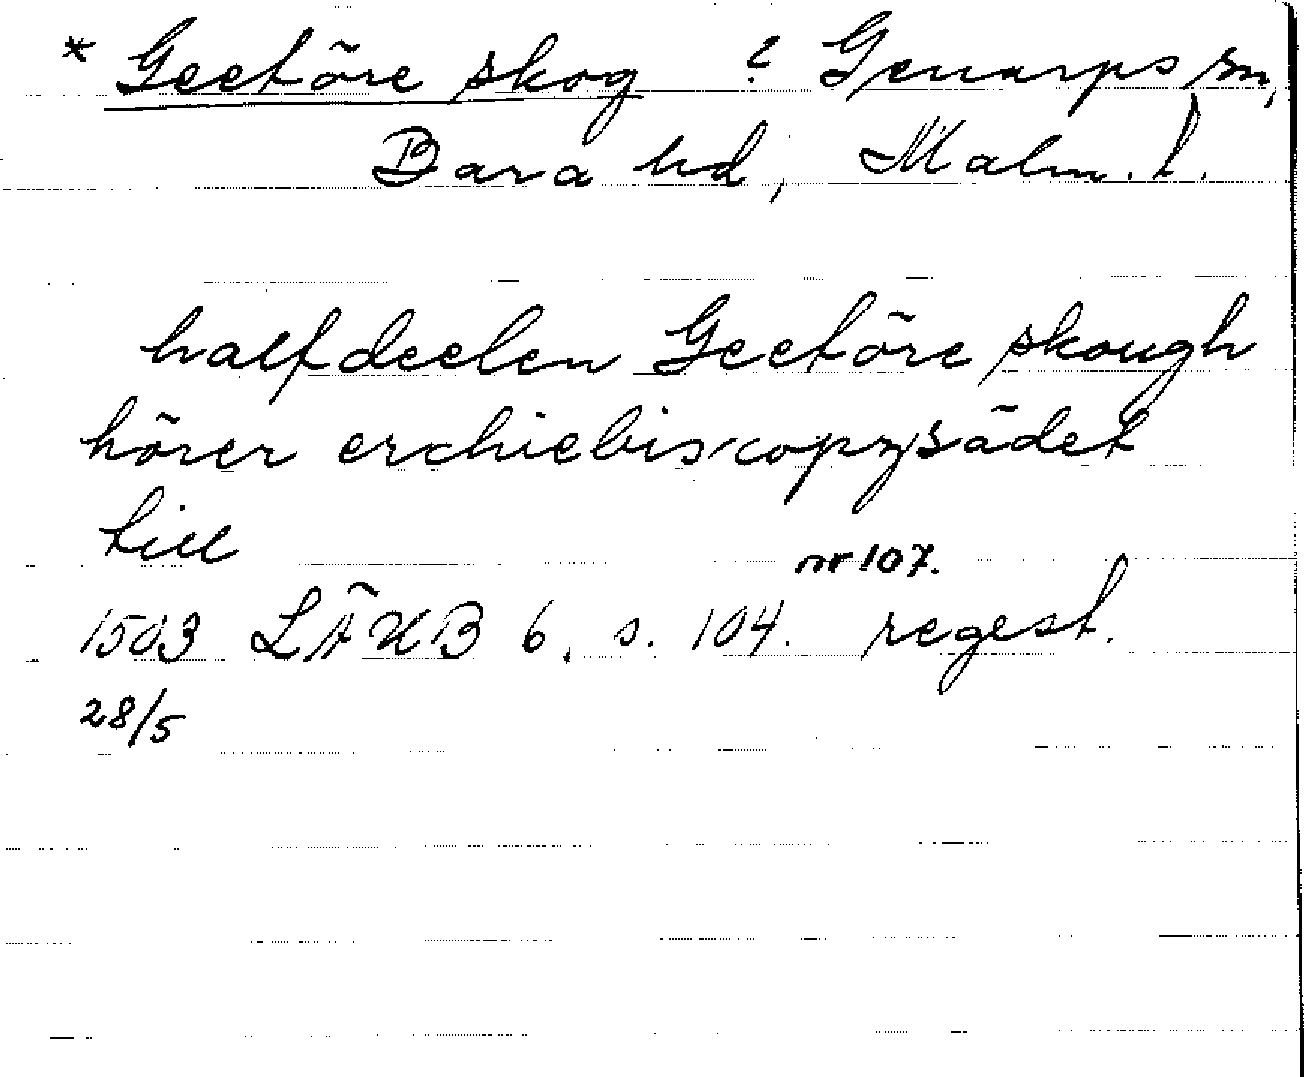 * Geetöre skog ? Genarps sn,
Bara hd, Malm. l.
halfdeelen Geetöre skough
hörer erchiebiscopzsädet
till
nr 107.
1503 LÄUB 6, s. 104. regest.
28/5